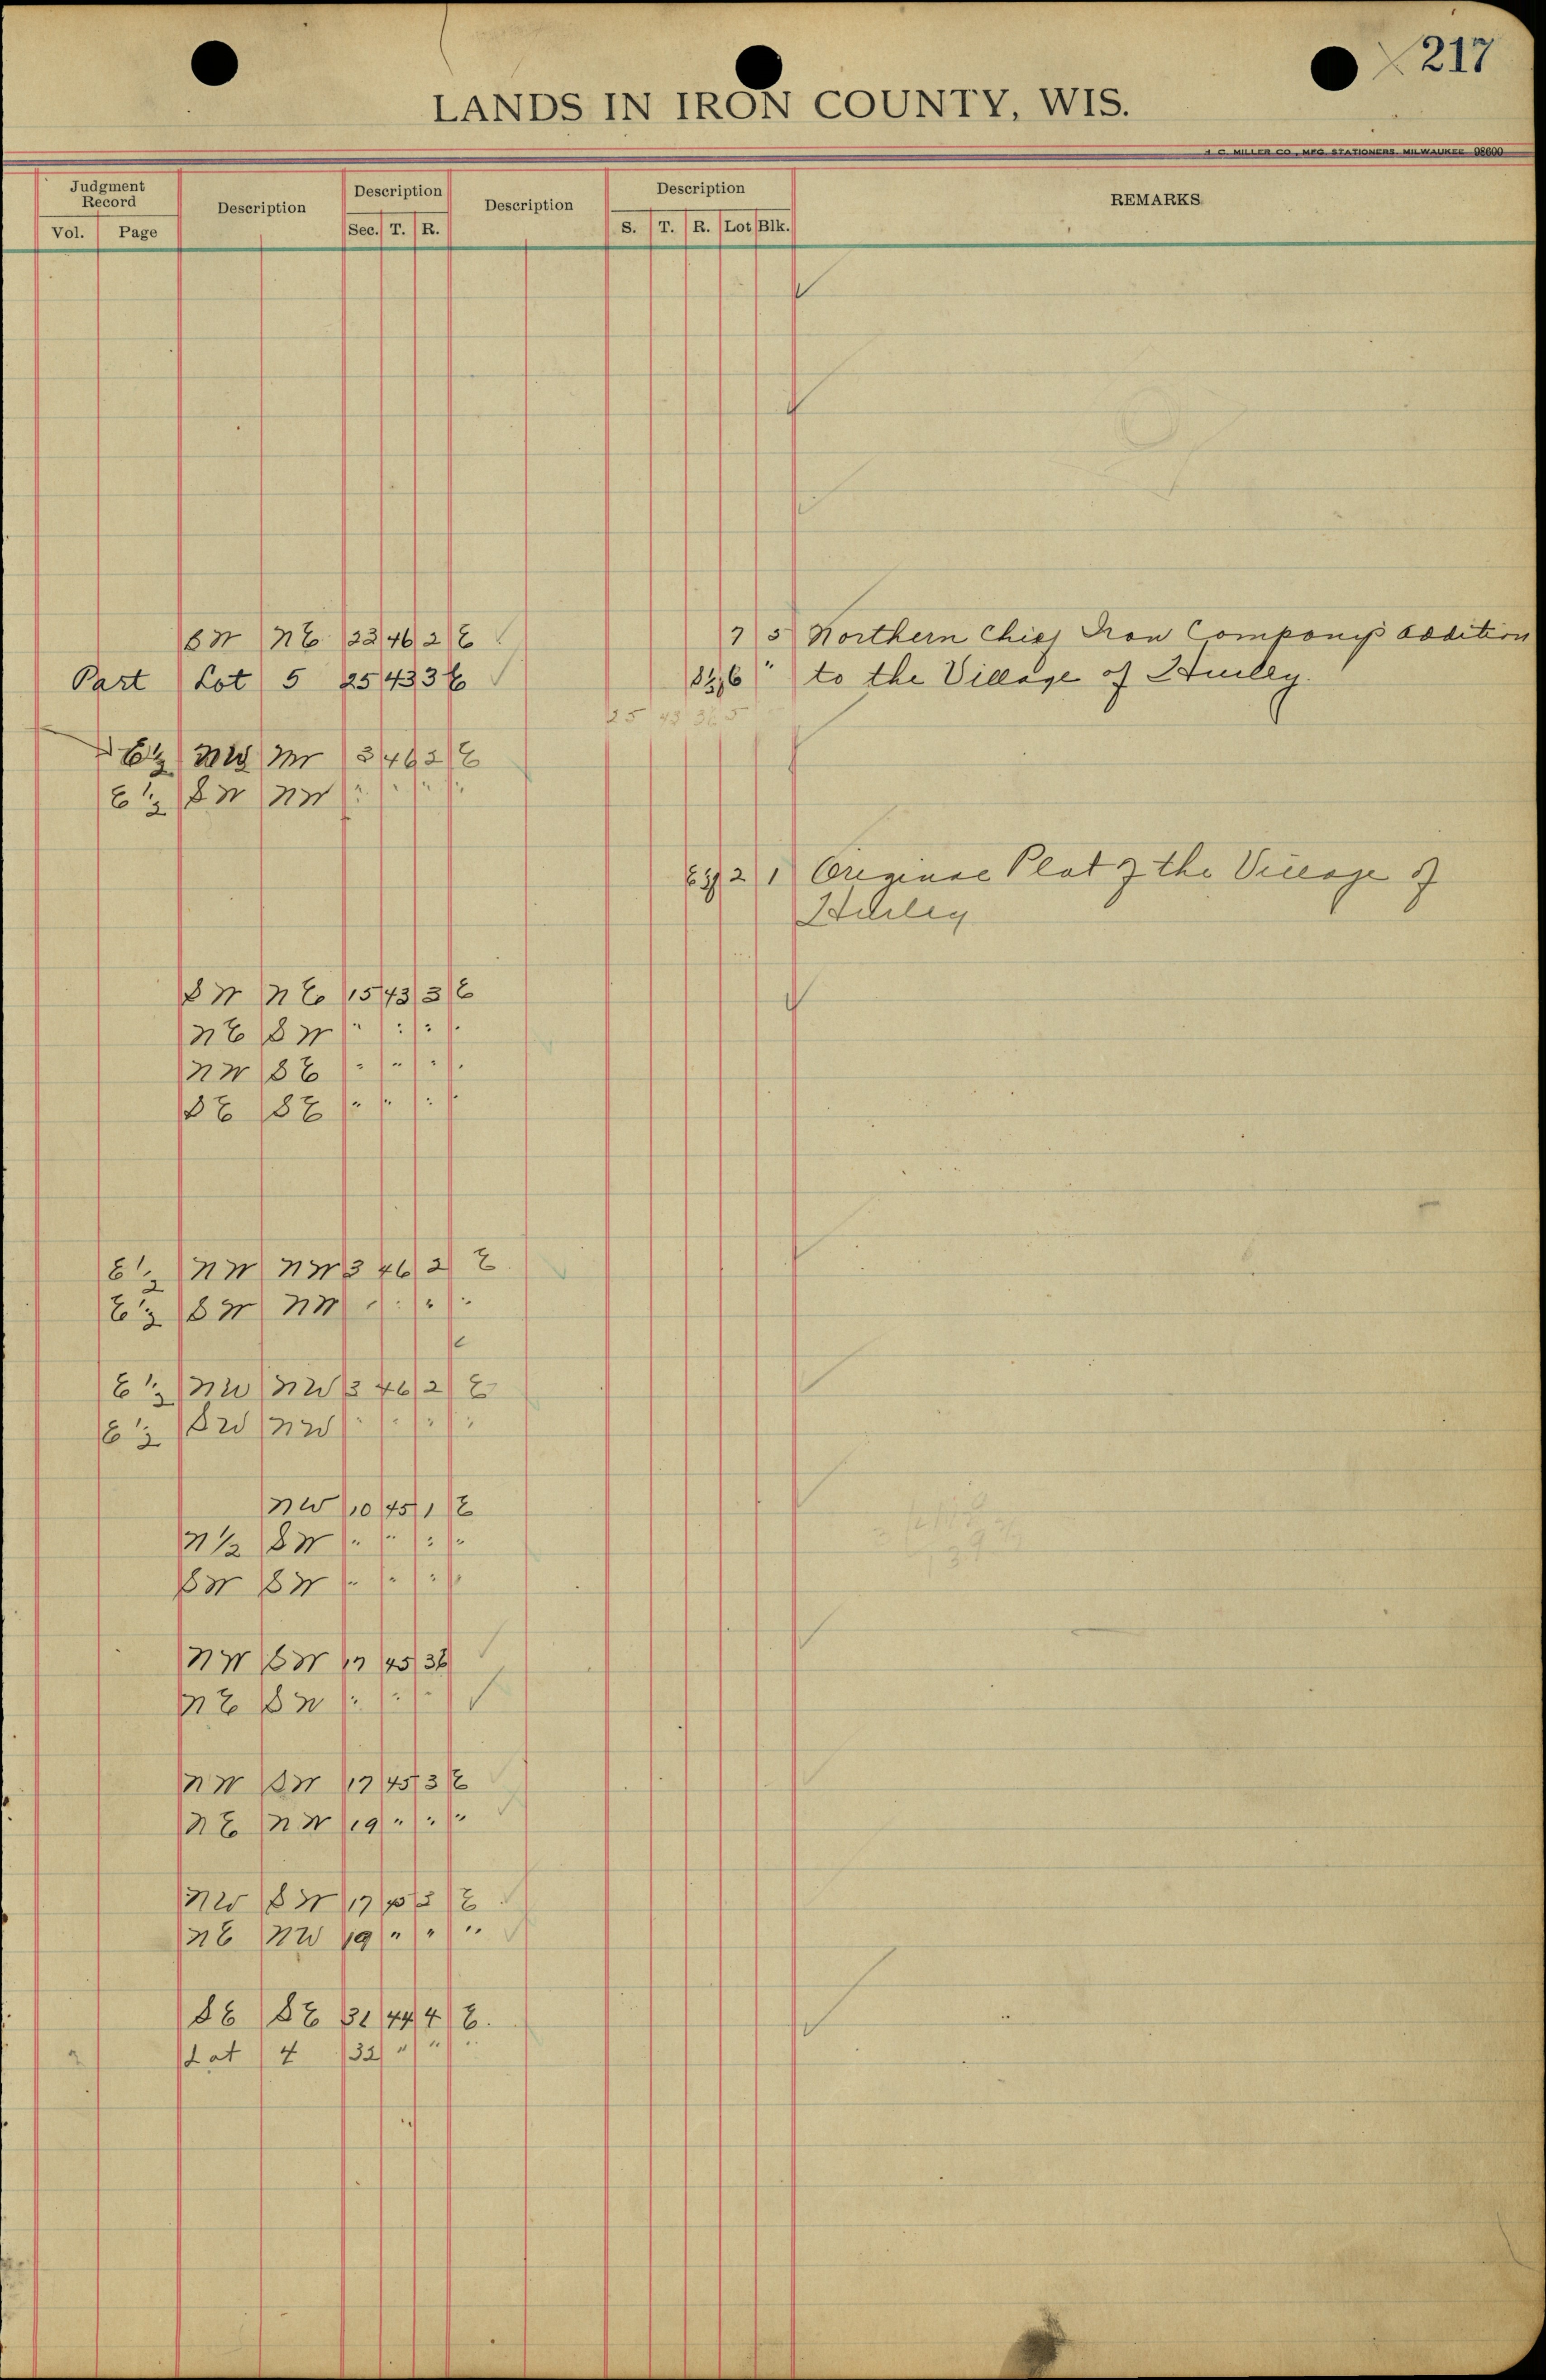 217
LANDS IN IRON COUNTY, WIS.
H. C. MILLER CO., MFG. STATIONERS, MILWAUKEE 98600
Judgment Record Description Description Description Description REMARKS
Vol. Page Sec. T. R. S. T. R. Lot Blk.
SW NE 22 46 2 E 7 5 Northern Chief Iron Company's addition
Part Lot 5 25 43 3 E S½ 6 " to the Village of Hurley.
25 43 3E 5
E½ NW NW 3 46 2 E
E½ SW NW " " " "
E½ 2 1 Original Plat of the Village of
Hurley
SW NE 15 43 3 E
NE SW " " " "
NW SE " " " "
SE SE " " " "
E½ NW NW 3 46 2 E
E½ SW NW " " " "
E½ NW NW 3 46 2 E
E½ SW NW " " " "
NW 10 45 1 E
N½ SW " " " "
SW SW " " " "
NW SW 17 45 3E
NE SW " " "
NW SW 17 45 3 E
NE NW 19 " " "
NW SW 17 45 3 E
NE NW 19 " " "
SE SE 31 44 4 E.
Lot 4 32 " " "